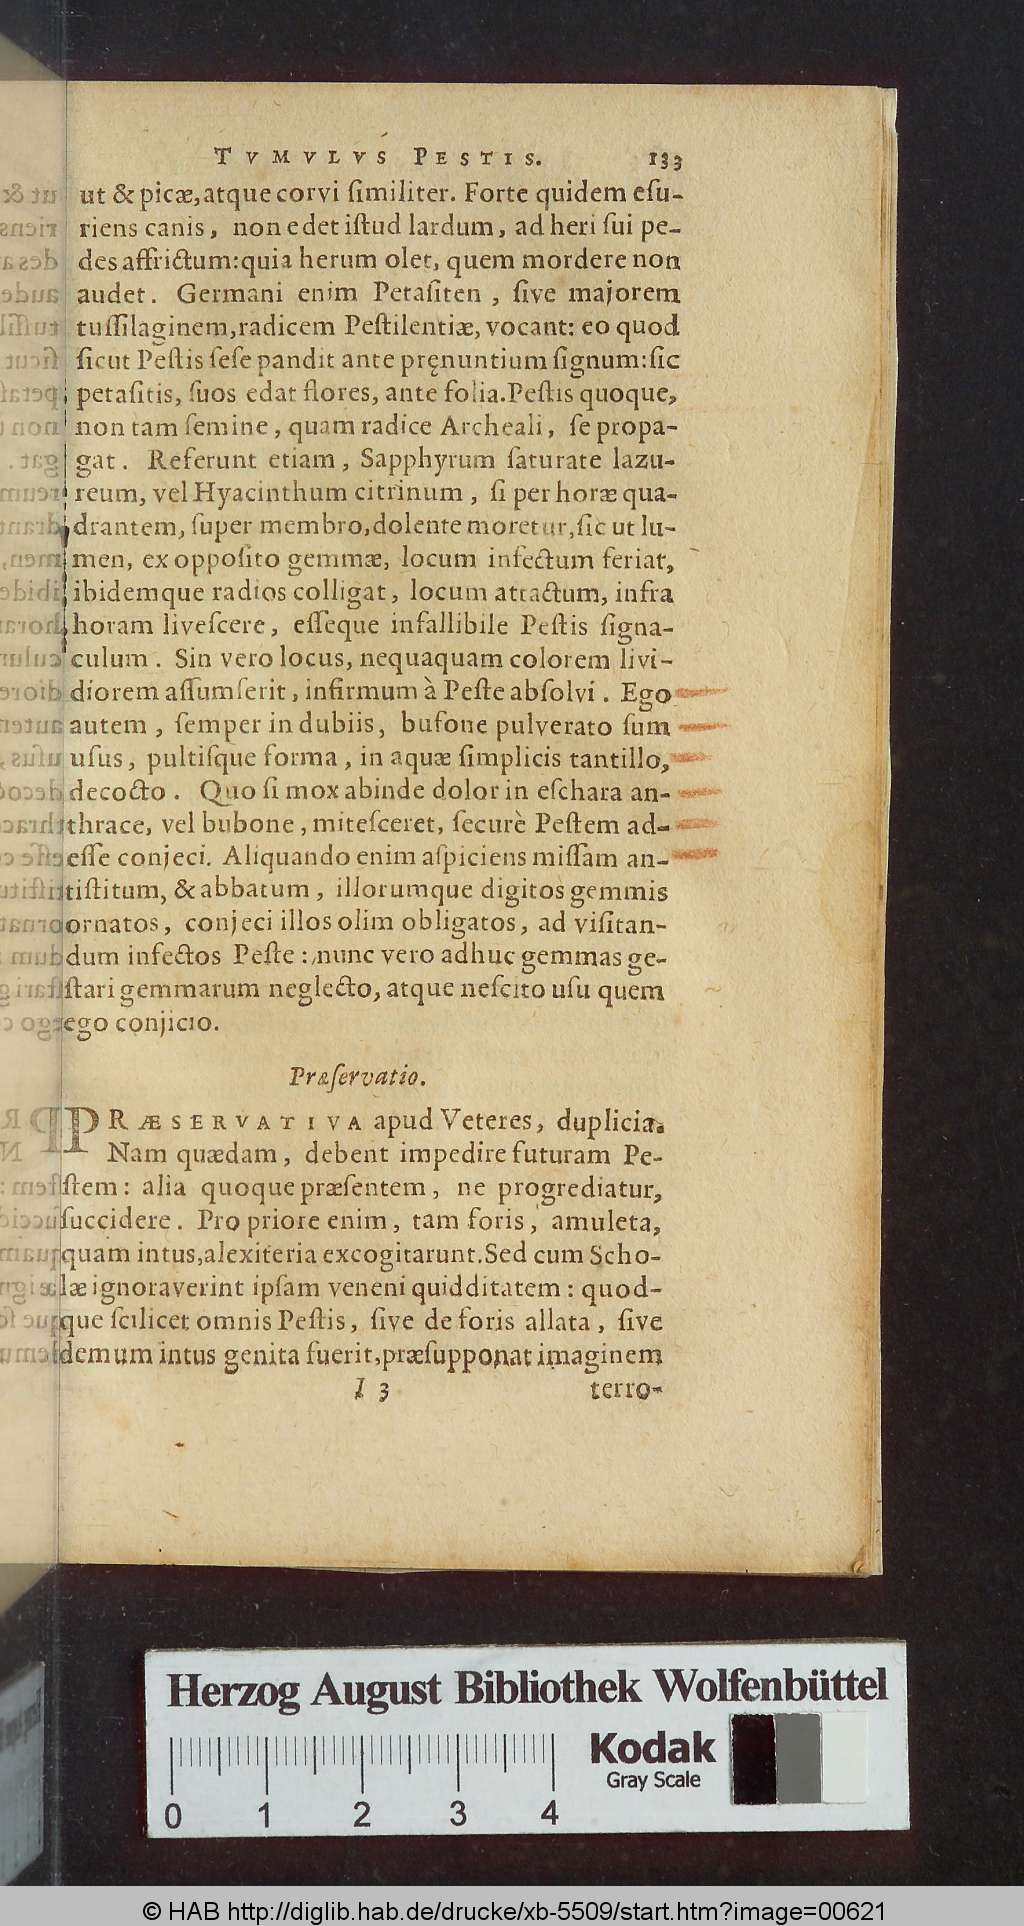 TVMVLVS PESTIS. 133
ut & picæ, atque corvi ſimiliter. Forte quidem eſu-
riens canis, non edet iſtud lardum, ad heri ſui pe-
des affrictum: quia herum olet, quem mordere non
audet. Germani enim Petaſiten, ſive majorem
tuſſilaginem, radicem Peſtilentiæ, vocant: eo quod
ſicut Peſtis ſeſe pandit ante pręnuntium ſignum: ſic
petaſitis, ſuos edat flores, ante folia. Peſtis quoque,
non tam ſemine, quam radice Archeali, ſe propa-
gat. Referunt etiam, Sapphyrum ſaturate lazu-
reum, vel Hyacinthum citrinum, ſi per horæ qua-
drantem, ſuper membro, dolente moretur, ſic ut lu-
men, ex oppoſito gemmæ, locum infectum feriat,
ibidemque radios colligat, locum attactum, infra
horam liveſcere, eſſeque infallibile Peſtis ſigna-
culum. Sin vero locus, nequaquam colorem livi-
diorem aſſumſerit, infirmum à Peſte abſolvi. Ego
autem, ſemper in dubiis, bufone pulverato ſum
uſus, pultiſque forma, in aquæ ſimplicis tantillo,
decocto. Quo ſi mox abinde dolor in eſchara an-
thrace, vel bubone, miteſceret, ſecurè Peſtem ad-
eſſe conjeci. Aliquando enim aſpiciens miſſam an-
tiſtitum, & abbatum, illorumque digitos gemmis
ornatos, conjeci illos olim obligatos, ad viſitan-
dum infectos Peſte: nunc vero adhuc gemmas ge-
ſtari gemmarum neglecto, atque neſcito uſu quem
ego conjicio.
Præſervatio.
PRÆSERVATIVA apud Veteres, duplicia.
Nam quædam, debent impedire futuram Pe-
ſtem: alia quoque præſentem, ne progrediatur,
ſuccidere. Pro priore enim, tam foris, amuleta,
quam intus, alexiteria excogitarunt. Sed cum Scho-
læ ignoraverint ipſam veneni quidditatem: quod-
que ſcilicet omnis Peſtis, ſive de foris allata, ſive
demum intus genita fuerit, præſupponat imaginem
I 3 terro-
Herzog August Bibliothek Wolfenbüttel
Kodak
Gray Scale
0 1 2 3 4
© HAB http://diglib.hab.de/drucke/xb-5509/start.htm?image=00621